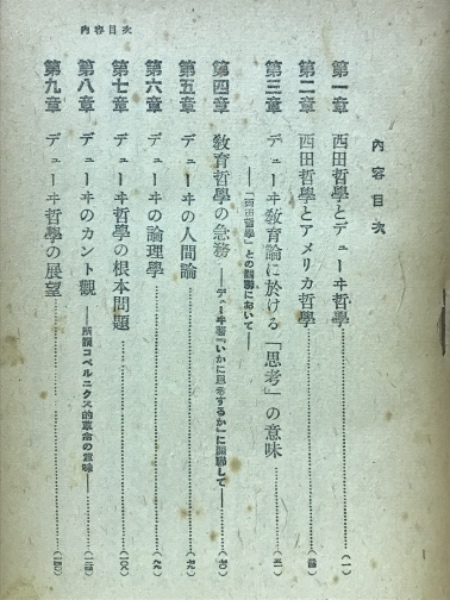 內容目次
內容目次
第一章 西田哲學とデューヰ哲學……(一)
第二章 西田哲學とアメリカ哲學……
第三章 デューヰ敎育論に於ける「思考」の意味……
――「西田哲學」との關聯において――
第四章 敎育哲學の急務――デューヰ著『いかに思考するか』に關聯して――……(七〇)
第五章 デューヰの人間論……
第六章 デューヰの論理學……
第七章 デューヰ哲學の根本問題……(一〇八)
第八章 デューヰのカント觀――所謂コペルニクス的革命の意味――……
第九章 デューヰ哲學の展望……